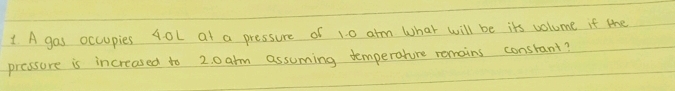 1. A gas occupies 4.0L at a pressure of 1.0 atm what will be its volume if the
pressure is increased to 2.0atm assuming temperature remains constant?